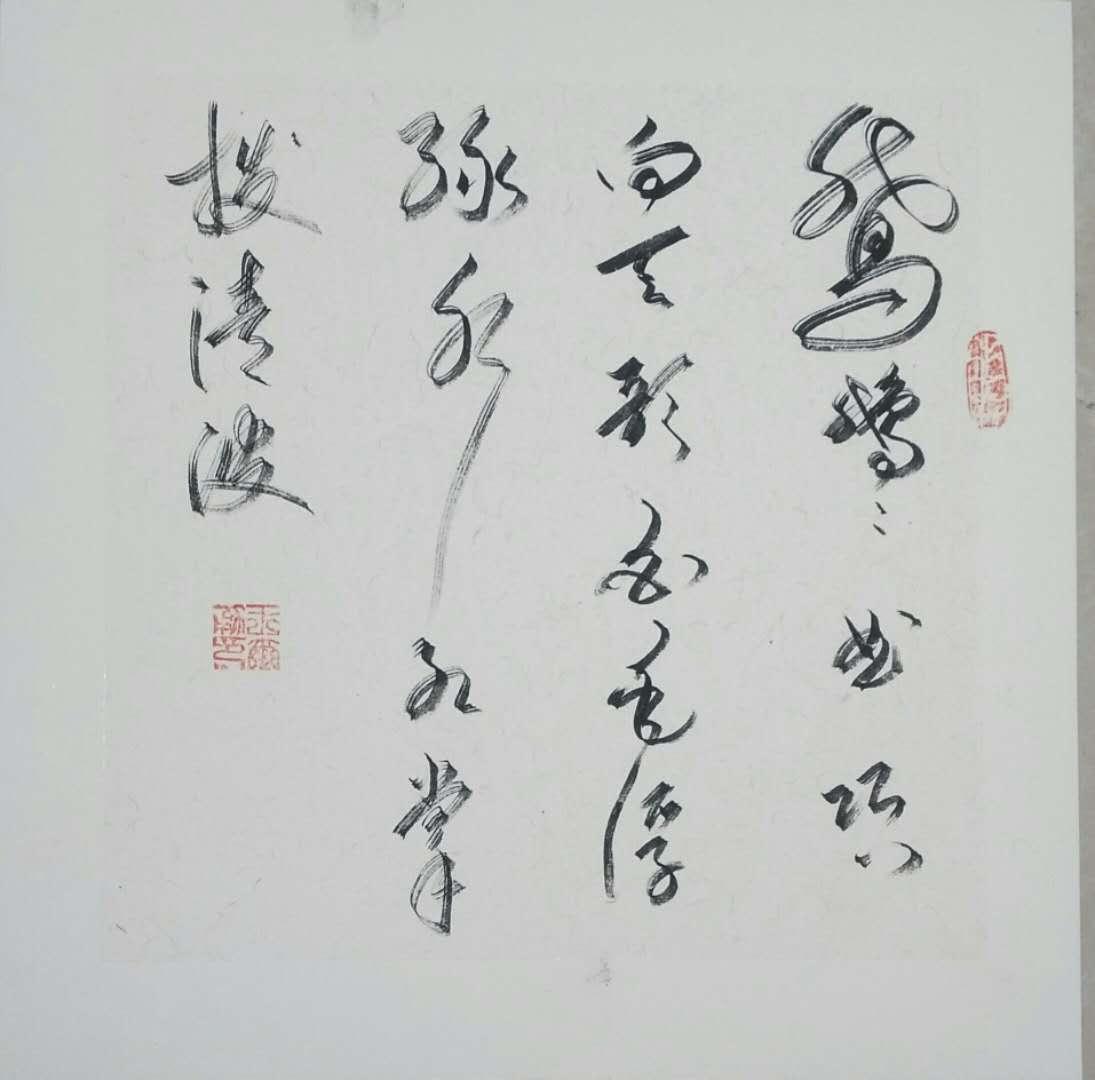 鵞鵞〻曲项
向天歌白毛浮
绿水红掌
拨清波